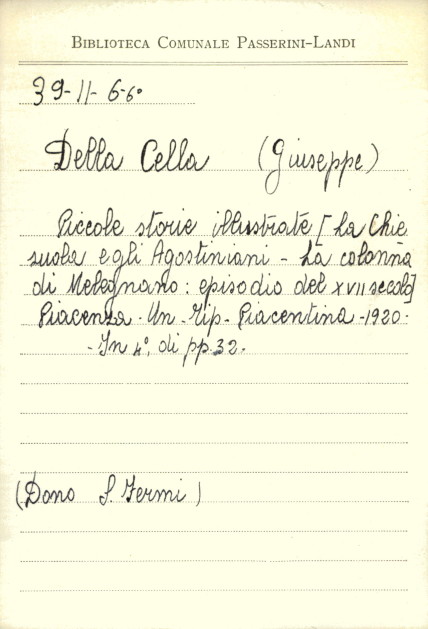 BIBLIOTECA COMUNALE PASSERINI-LANDI
39-11-6-6°
Della Cella (Giuseppe)
Piccole storie illustrate [La Chie
suola e gli Agostiniani - La colonna
di Melegnano: episodio del XVII secolo]
Piacenza - Un. Tip. Piacentina - 1920 -
- In 4°, di pp. 32.
(Dono S. Fermi)